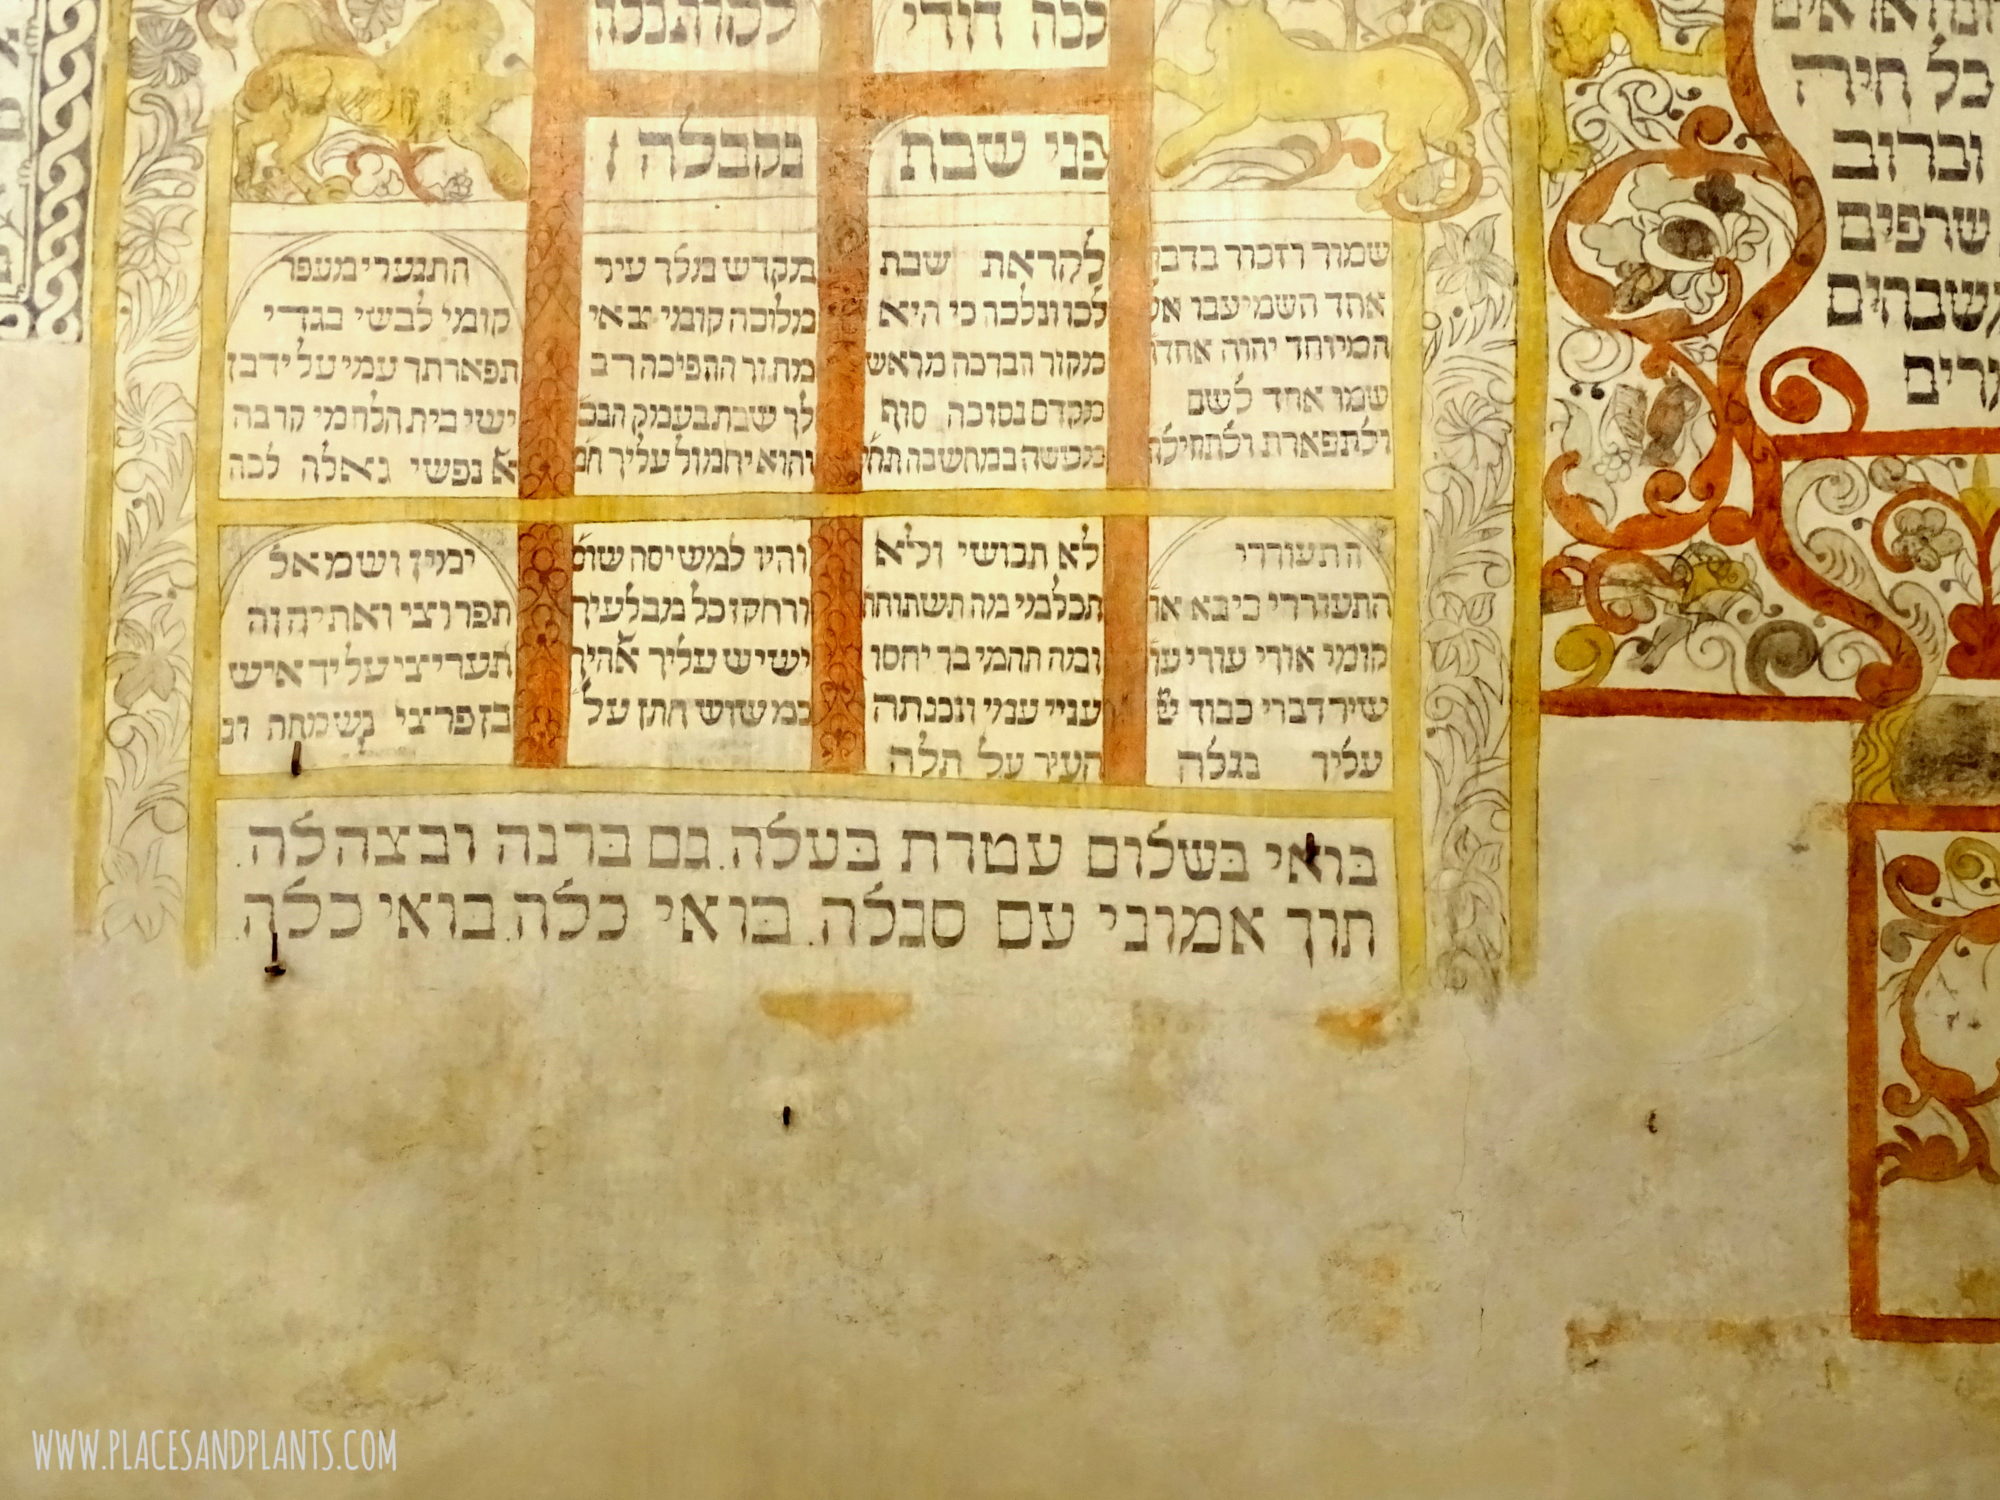 לכה דודי
לקראת כלה
פני שבת
נקבלה
שמור וזכור בדבו
אחד השמיענו אל
המיוחד יהוה אחדו
שמו אחד לשם
ולתפארת ולתהילה
לקראת שבת
לכו ונלכה כי היא
מקור הברכה מראש
מקדם נסוכה סוף
מעשה במחשבה תחל
מקדש מלך עיר
מלוכה קומי צאי
מתוך ההפיכה רב
לך שבת בעמק הבכ
והוא יחמול עליך חמ
התנערי מעפר
קומי לבשי בגדי
תפארתך עמי על יד בן
ישי בית הלחמי קרבה
א נפשי גאלה לכה
התעוררי
התעוררי כי בא או
קומי אורי עורי עו
שיר דברי כבוד
עליך נגלה
לא תבושי ולא
תכלמי מה תשתוחח
ומה תהמי בך יחסו
עניי עמי ונבנתה
העיר על תלה
והיו למשיסה שוס
ורחקו כל מבלעיך
ישיש עליך אהיך
כמשוש חתן על
ימין ושמאל
תפרוצי ואת יהוה
תעריצי על יד איש
בן פרצי נשמחת ונ
בואי בשלום עטרת בעלה. גם ברנה ובצהלה.
תוך אמוני עם סגלה. בואי כלה. בואי כלה.
כל חיה
וברוב
שרפים
משבחים
WWW.PLACESANDPLANTS.COM